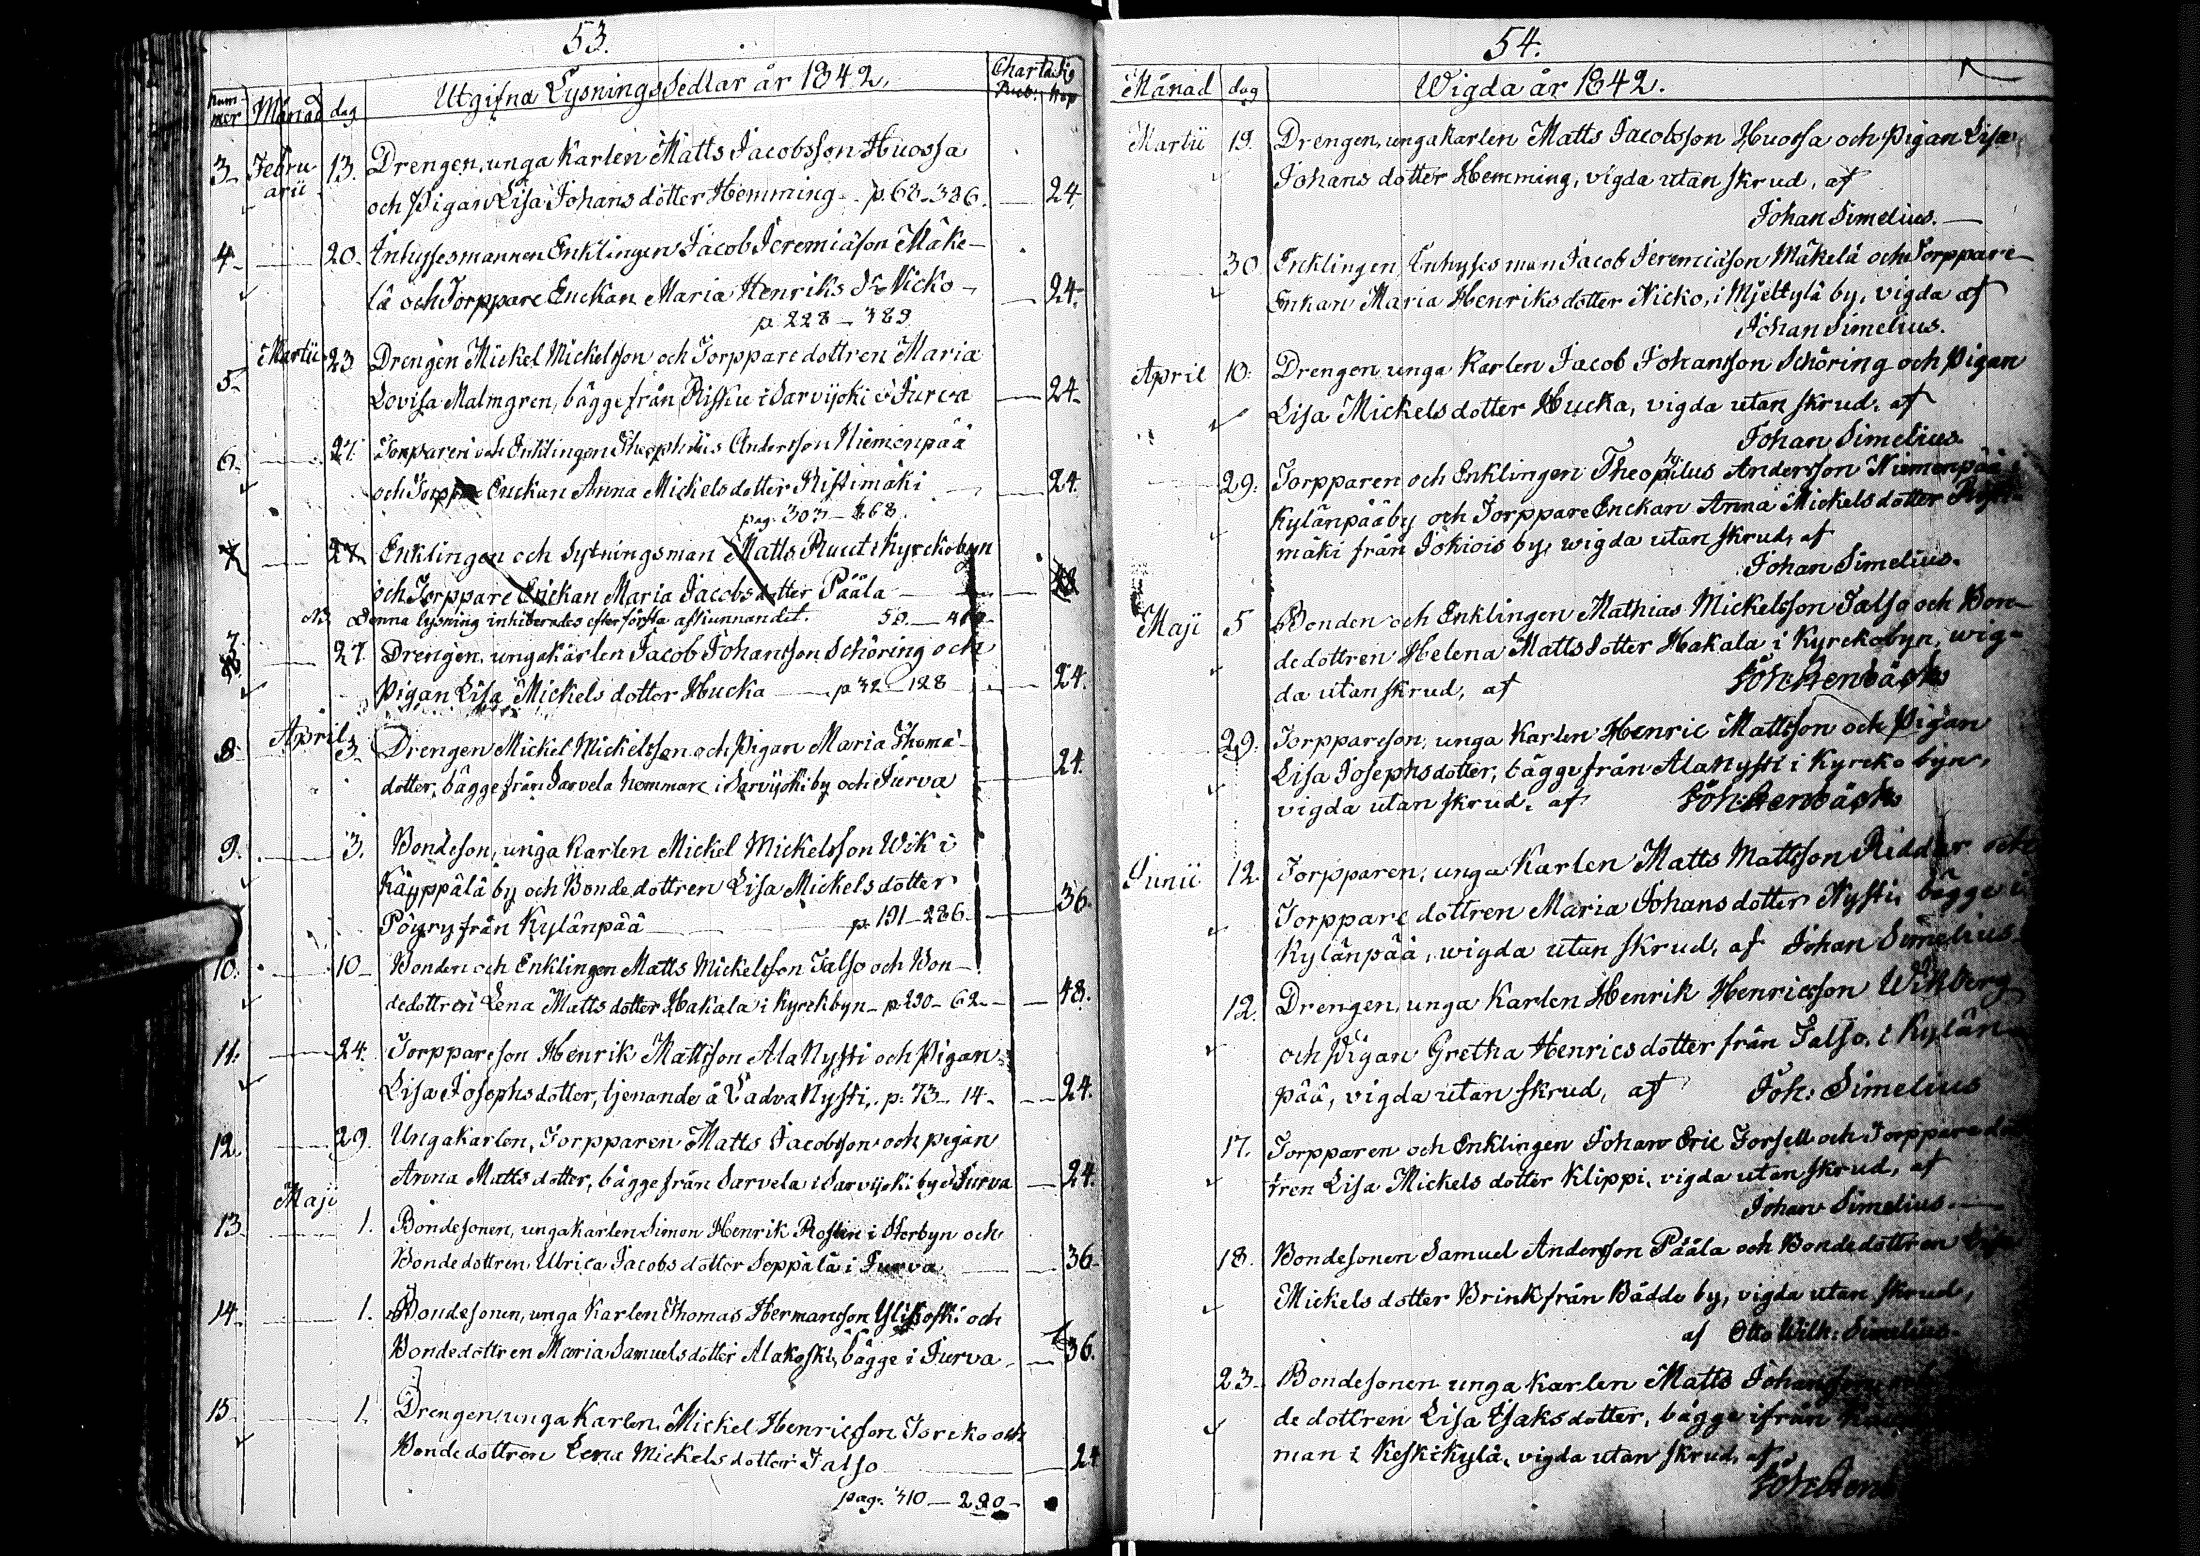 53.
Utgifna LysningsSedlar år 1842.
Charta Sig
Rub: Kop
Num-
mer Månad dag
3. Febru- 13. Drengen, unga Karlen Matts Jacobsson Huossa
arii och Pigan Lisa Johans dotter Hemming - p. 68-386. 24.
4. 20. Inhyses mannen Enklingen Jacob Jeremiäson Mäke-
lä och Torppare Enckan Maria Henriks Dr Nicko - 24.
p. 228 - 389
5. Martii 23. Drengen Mickel Mickelsson och Torppare dottren Maria
Lovisa Malmgren, bägge från Risku i Sarvijoki i Jurva 24.
6. 27. Torparen och Enklingen Theophilus Andersson Niemenpää
och Torppare Enckan Anna Mickels dotter Ristimäki 24.
pag. 303 - 268.
7. 27. Enklingen och Sytningsman Matts Ruut i Kyrckobyn
och Torppare Enckan Maria Jacobs dotter Pääla 48
NB Denna lysning inhiberades efter första afkunnandet. 50.
7. 27. Drengen, unga karlen Jacob Johansson Schöring och
Pigan Lisa Mickels dotter Hucka p 32 - 128 24.
8. April 3. Drengen Mickel Mickelsson och Pigan Maria Thoma-
dotter, bägge från Sarvela hemman i Sarvijoki by och Jurva 24.
9. 3. Bondeson, unga Karlen Mickel Mickelsson Wik i
Käyppälä by och Bonde dottren Lisa Mickels dotter
Pöyry från Kylänpää p. 191 - 286 36.
10. 10. Bonden och Enklingen Matts Mickelsson Jalso och Bon-
dedottren Lena Matts dotter Hakala i Kyrckbyn - p. 290 - 62 - 48.
11. 24. Torppareson Henrik Mattsson AlaNysti och Pigan
Lisa Josephs dotter, tjenande å LadvaNysti, p. 73 - 14 - 24.
12. 29. Unga karlen, Torpparen Matts Jacobsson och pigan
Anna Matts dotter, bägge från Sarvela i Sarvijoki by i Jurva 24.
Maji
13. 1. Bondesonen, unga karlen Simon Henrik i och
Bonde dottren Ulrica Jacobs dotter Seppälä i Jurva 36.
14. 1. Bondesonen, unga Karlen Thomas Hermansson Ylikoski och
Bondedottren Maria Samuels dotter Alakoski, bägge i Jurva 36.
15. 1. Drengen, unga Karlen Mickel Henricsson och
Bonde dottren Lena Mickels dotter Jalso 24
pag. 310 - 290 -
54.
Månad dag Wigda år 1842.
Martii 19. Drengen, unga Karlen Matts Jacobsson Huossa och Pigan Lisa
Johans dotter Hemming, vigda utan skrud, af
Johan Simelius.
30. Enklingen, Inhyses man Jacob Jeremiäson Mäkelä och Torppare-
Enkan Maria Henriks dotter Nicko, i Mjettylä by, vigda af
Johan Simelius.
April 10. Drengen unga Karlen Jacob Johansson Schöring och Pigan
Lisa Mickels dotter Hucka, vigda utan skrud, af
Johan Simelius.
29. Torpparen och Enklingen Theophilus Andersson Niemenpää i
Kylänpää by och Torppare Enckan Anna Mickels dotter Risti-
mäki från Jokiois by, wigda utan skrud, af
Johan Simelius.
Maji 5 Bonden och Enklingen Mathias Mickelsson Jalso och Bon-
dedottren Helena Matts dotter Hakala i Kyrckobyn, wig-
da utan skrud, af Joh: Stenbäck
29. Torppareson, unga Karlen Henric Mattsson och Pigan
Lisa Josephsdotter, bägge från AlaNysti i Kyrcko byn,
vigda utan skrud, af Joh: Stenbäck
Junii 12. Torpparen, unga Karlen Matts Mattsson Riddar och
Torppare dottren Maria Johans dotter Nysti, bägge i
Kylänpää, wigda utan skrud, af Johan Simelius
12. Drengen, unga Karlen Henrik Henricsson Wikberg
och Pigan Gretha Henrics dotter från Jalso, i Kylän-
pää, vigda utan skrud, af Joh: Simelius
17. Torpparen och Enklingen Johan Eric Forsell och Torppare dot-
tren Lisa Mickels dotter Klippi, vigda utan skrud, af
Johan Simelius
18. Bondesonen Samuel Andersson Pääla och Bondedottren Lisa
Mickels dotter Brink från Bäddo by, vigda utan skrud,
af Otto Wilh: Simelius.
23. Bondesonen unga Karlen Matts Johansson
dedottren Lisa Isaks dotter, bägge ifrån
man i Keskikylä, vigda utan skrud, af
Joh: Stenb